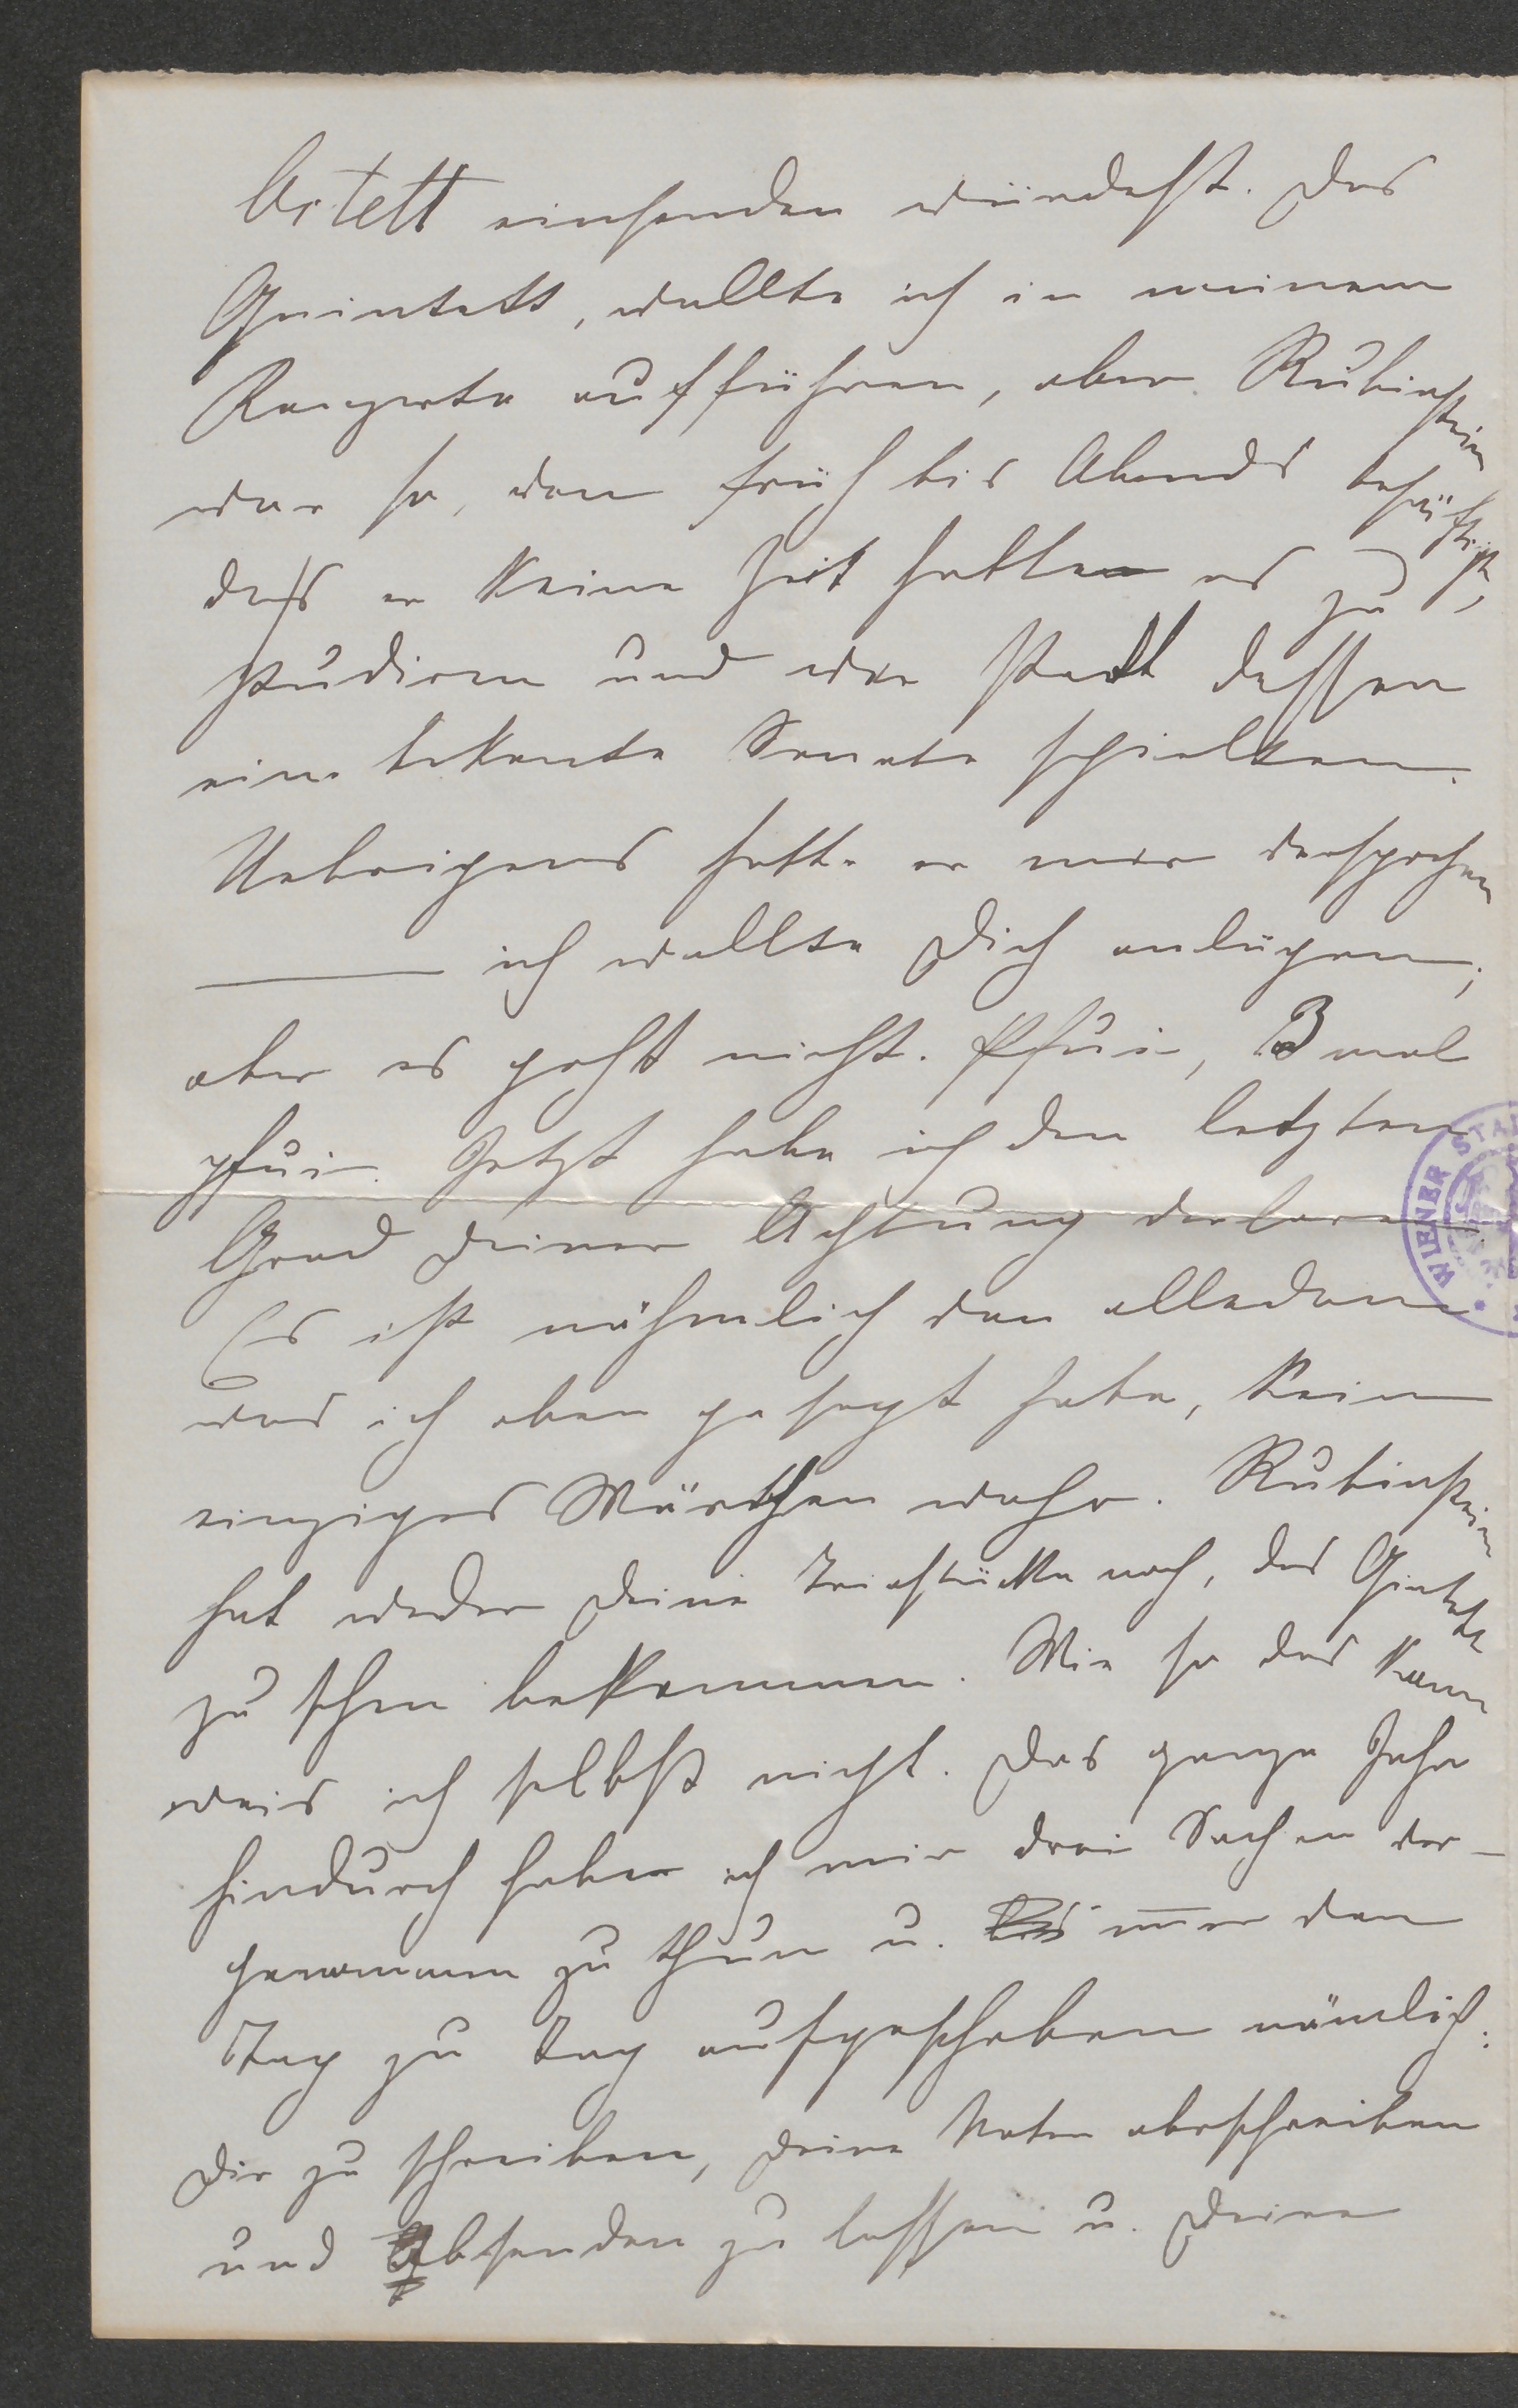 Octett einsenden würdest. Das
Quintett, wollte ich in meinem
Konzerte aufführen, aber Rubinstein
war so, von früh bis Abends beschäftigt,
daß er keine Zeit hatte es zu
studiren und wir statt dessen
eine bekante Sonate spielten.
Uebrigens hatte er mir versprochen
——— ich wollte Dich anlügen,
aber es geht nicht. Pfui, 3 mal
pfui. Jetzt habe ich den letzten
Grad Deiner Achtung verloren
Es ist nähmlich von alledem
was ich oben gesagt habe, kein
einziges Wörtchen wahr. Rubinstein
hat weder Deine Triostücke noch, das Qintett
zu sehen bekommen. Wie so das kam
weis ich selbst nicht. Das ganze Jahr
hindurch habe ich mir drei Sachen vor-
genommen zu thun u. imer von
Tag zu Tag aufgeschoben nämlich:
Dir zu schreiben, Deine Noten abschreiben
und Absenden zu lassen u. Deine
WIENER STA